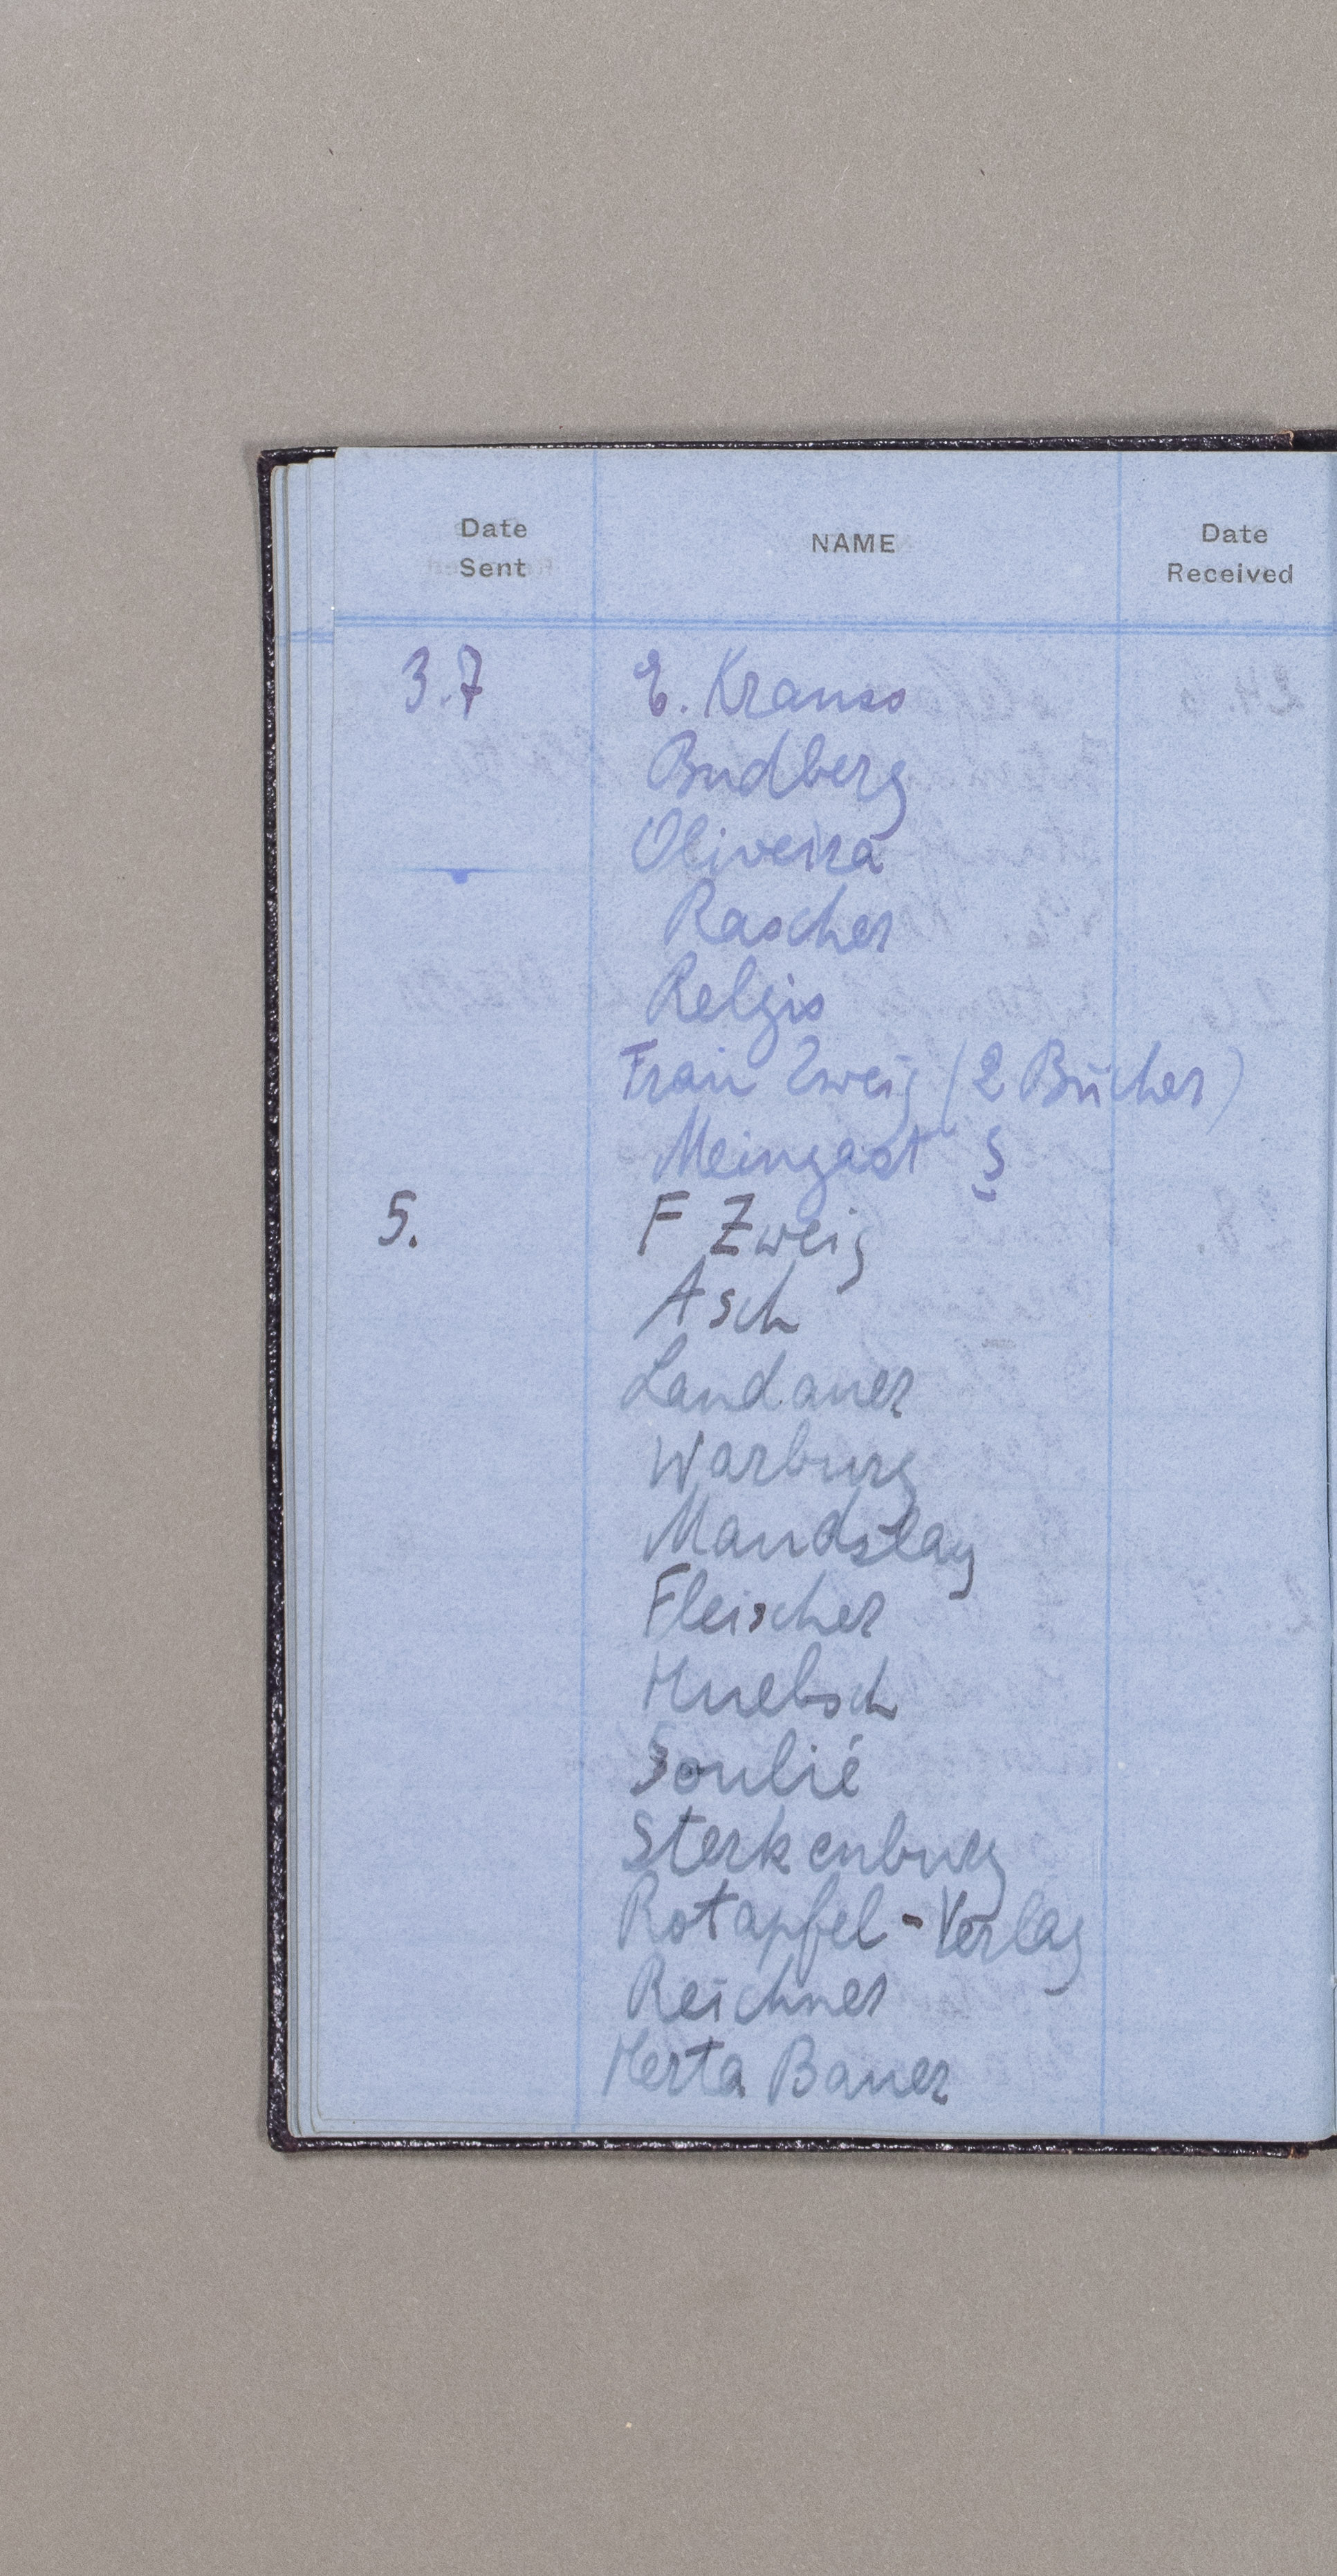 Date Sent NAME Date Received
3.7 E. Krauss
Budberg
Oliveira
Rascher
Relgis
Frau Zweig (2 Bücher)
Meingast S
5. F Zweig
Asch
Landauer
Warburg
Fleischer
Huebsch
Soulié
Sterkenburg
Rotapfel-Verlag
Reichner
Herta Bauer